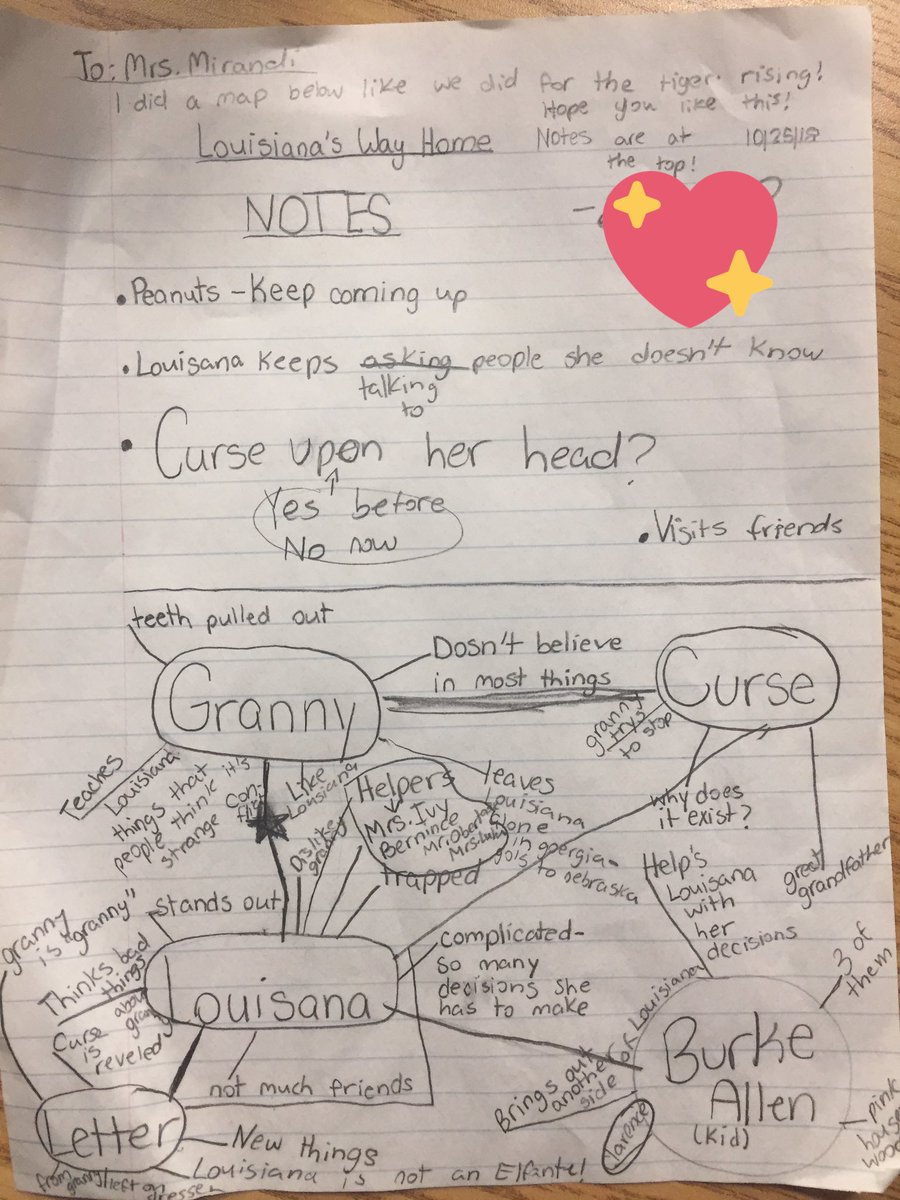 To: Mrs. Mirandi
I did a map below like we did for the tiger rising!
Hope you like this!
Louisiana's Way Home
Notes are at
the top!
NOTES
• Peanuts - Keep coming up
• Louisana Keeps asking people she doesn't know
talking
to
• Curse upon her head?
Yes before
No now
• Visits friends
teeth pulled out
Granny
Dosn't believe
in most things
Curse
granny
trys
to stop
Teaches
Louisiana
things that
people think it's
strange
Like
Lousiana
Dislike
granny
Helpers
Mrs. Ivy
Bernince
leaves
Louisiana
alone
in georgia-
to nebraska
trapped
why does
it exist?
great
grandfather
Help's
Louisana
with
her
decisions
granny
is "granny"
Stands out
Thinks bad
things
about
granny
Curse
is
reveledy
Louisana
complicated-
so many
decisions she
has to make
not much friends
Burke
Allen
(kid)
3 of
them
Brings out
another
side
of Louisiana
Clarence
pink
house
Letter
New things
Louisiana is not an Elfante!
from granny left on
dresser